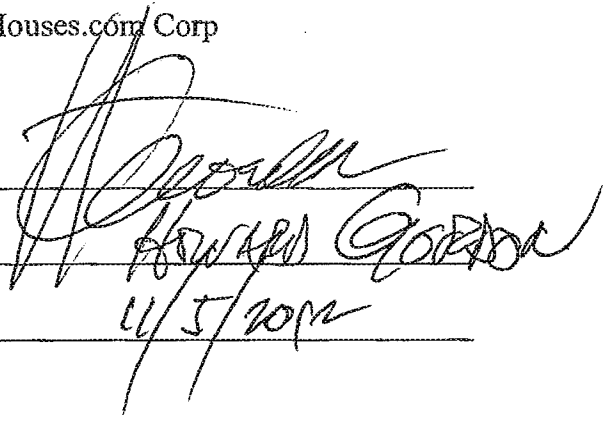 Houses.com Corp
Howard Gordon
11/5/2012